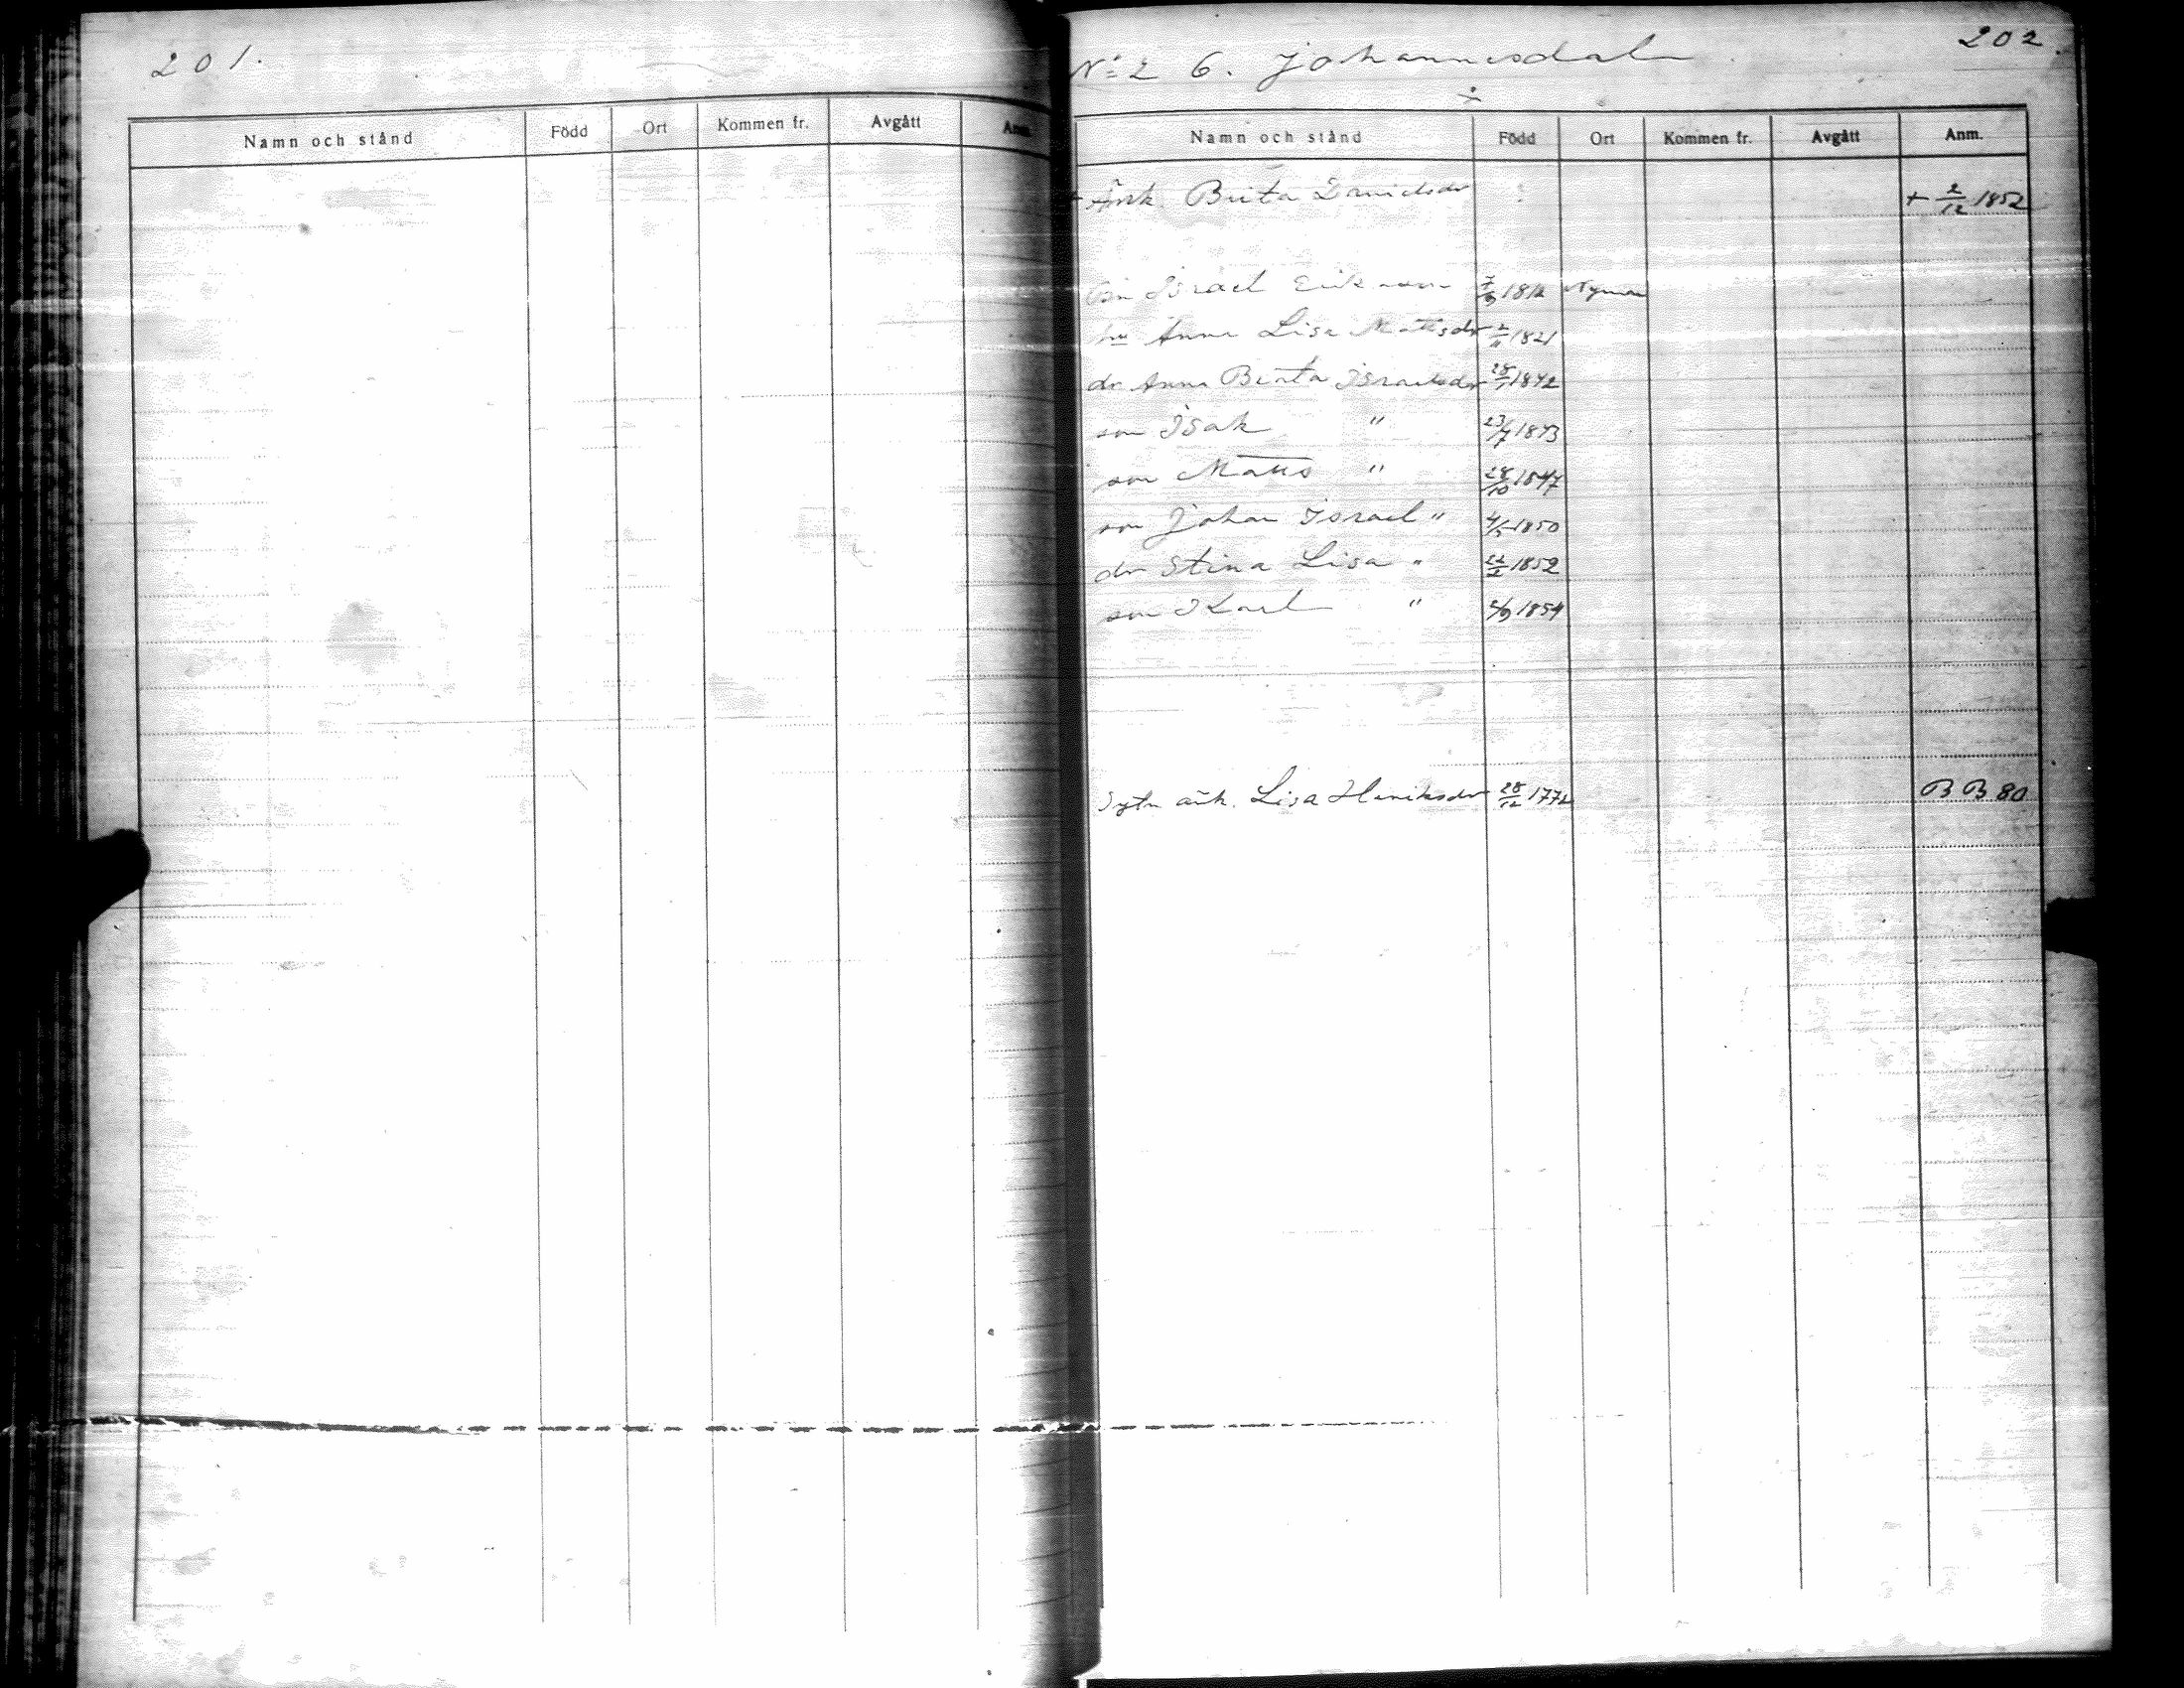 201.
Namn och stånd Född Ort Kommen fr. Avgått Anm.
202.
No 2 6. Johannesdal
Namn och stånd Född Ort Kommen fr. Avgått Anm.
+ Änk. Brita Danielsdr + 2/12 1852
Israel Eriksson
hu Anna Lisa Mattsdr 1821
dr Anna Beata Israelsdr 28/1 1842
son Isak "
son Matts " 28/10 1847
son Johan Israel " 4/5 1850
dr Stina Lisa " 1852
son Karl " 1854
Sytn änk. Lisa Henriksdr 28/12 1772 B B 80